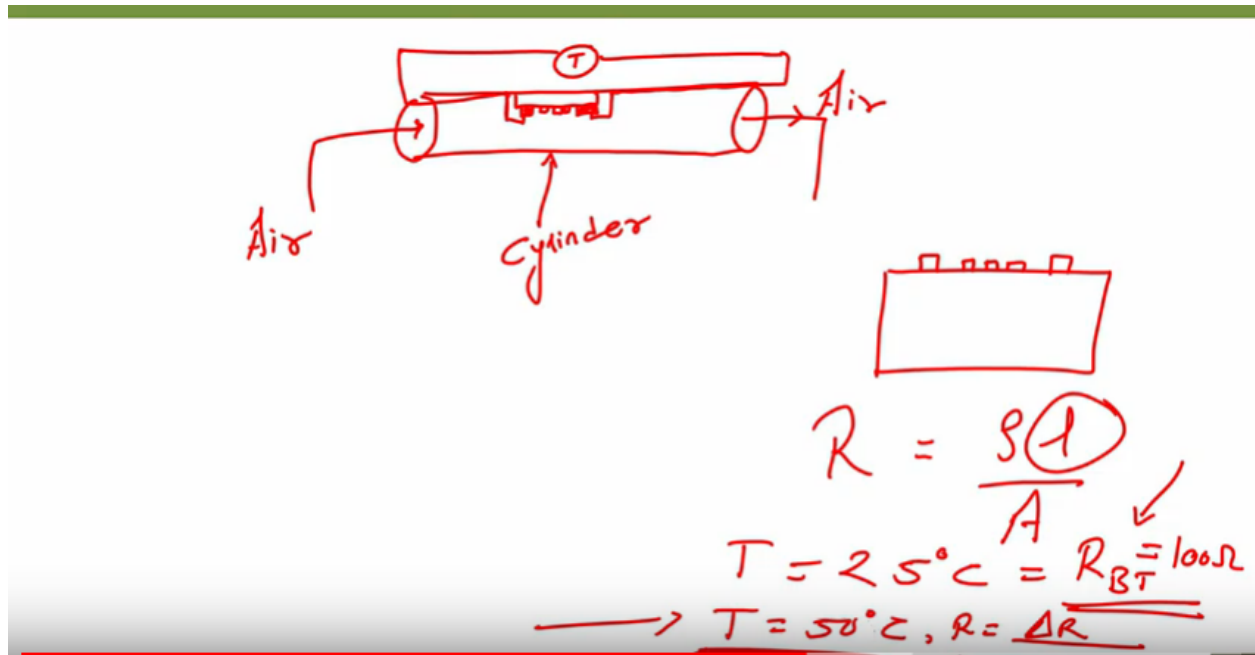 T
Air
Air
Cylinder
R = ρl/A
T = 25°C = R_BT = 100Ω
T = 50°C, R = ΔR